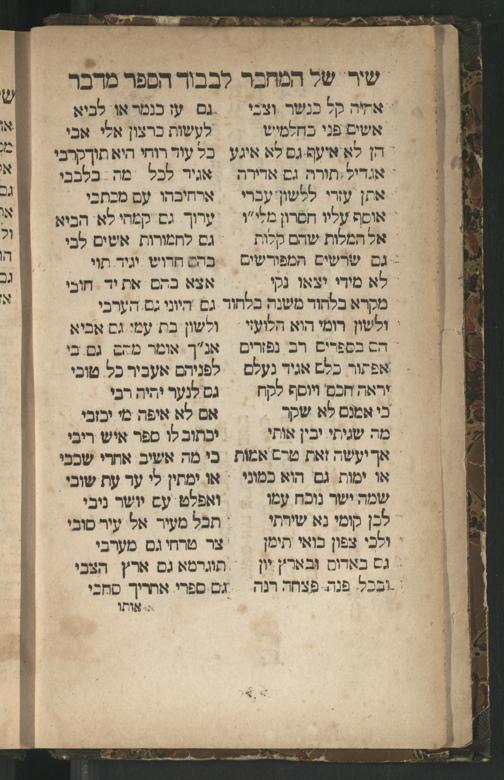 שיר של המחבר לכבוד הספר מדבר
אהיה קל כנשר וצבי גם עז כנמר או לביא
אשים פני כחלמיש לעשות כרצון אלי אבי
הן לא איעף גם לא איגע כל עוד רוחי היא תוך קרבי
אגדיל תורה גם אדירה אגיד לכל מה בלבבי
אתן עזרי ללשון עברי ארחיבהו עם מכתבי
אוסף עליו חסרון מלי״ו ערוך גם קמחי לא הביא
אל המלות שהם קלות גם לחמורות אשים לבי
גם שרשים המפורשים בהם חדוש יגיד תוי
לא מידי יצאו נקי אצא בהם את יד חובי
מקרא בלחוד משנה בלחוד גם היוני גם הערבי
ולשון רומי הוא הלועזי ולשון בת עמי גם אביא
הם בספרים רב נפזרים אנ״ך אומר מהם גם בי
אפתור כלם אגיד נעלם לפניהם אעביר כל טובי
יראה חכם ויוסף לקח גם לנער יהיה רבי
כי אמנם לא שקר אם לא איפה מי יכזבי
מה שגיתי יבין אותי יכתוב לו ספר איש ריבי
אך יעשה זאת טרם אמות כי מה אשיב אחרי שכבי
או ימות גם הוא כמוני או ימתין לי עד עת שובי
שמה ישר נוכח עמו ואפלט עם יושר ניבי
לכן קומי נא שירתי תבל מעיר אל עיר סובי
ולכי צפון בואי תימן צד מזרחי גם מערבי
גם באדום ובארץ יון תוגרמא גם ארץ הצבי
ובכל פנה פצחה רנה גם ספרי אחריך סחבי
אותו